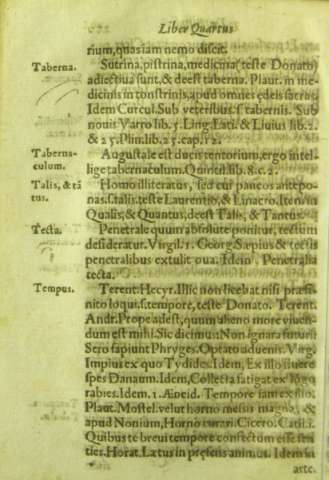 Liber Quartus
rium, quas iam nemo discit.
Taberna.
Sutrina, pistrina, medicina (teste Donato)
adiectiua sunt, & deest taberna. Plaut. in me-
dicinis in tonstrinis, apud omneis ędeis sacras.
Idem Curcul. Sub veteribus. s. tabernis. Sub
nouis Varro lib. 5. Ling. Lati. & Liuius lib. 2.
& 25. Plin. lib. 25. cap. 12.
Taberna-
culum.
Augustale est ducis tentorium, ergo intel-
lige tabernaculum. Quintil. lib. 8. c. 2.
Talis, & tā
tus.
Homo illiteratus, sed cui paucos antepo-
nas. f. talis. teste Laurentio, & Linacro. Item in
Qualis, & Quantus, deest Talis, & Tantus.
Tecta.
Penetrale quum absolute ponitur, tectum
desideratur. Virgil. 1. Georg. Sæpius & tectis
penetralibus extulit oua. Idem Penetralia
tecta.
Tempus.
Terent. Hecyr. Illic non licebat nisi præfi-
nito loqui. s. tempore, teste Donato. Terent.
Andr. Prope adest, quum alieno more viuen-
dum est mihi. Sic dicimus: Non ignara futuri
Sero sapiunt Phryges. Optato aduenis. Virg.
Impius ex quo Tydides. Idem, Ex illo fluere
spes Danaum. Idem, Collecta fatigat ex lōgo
rabies. Idem. 1. Æneid. Tempore iam ex illo.
Plaut. Mostel. velut horno messis magna, &
apud Nonium, Horno curari. Cicero: Catil. 1.
Quibus te breui tempore confectum esse sen-
ties. Horat. Lætus in præsens animus. Idem in
arte.